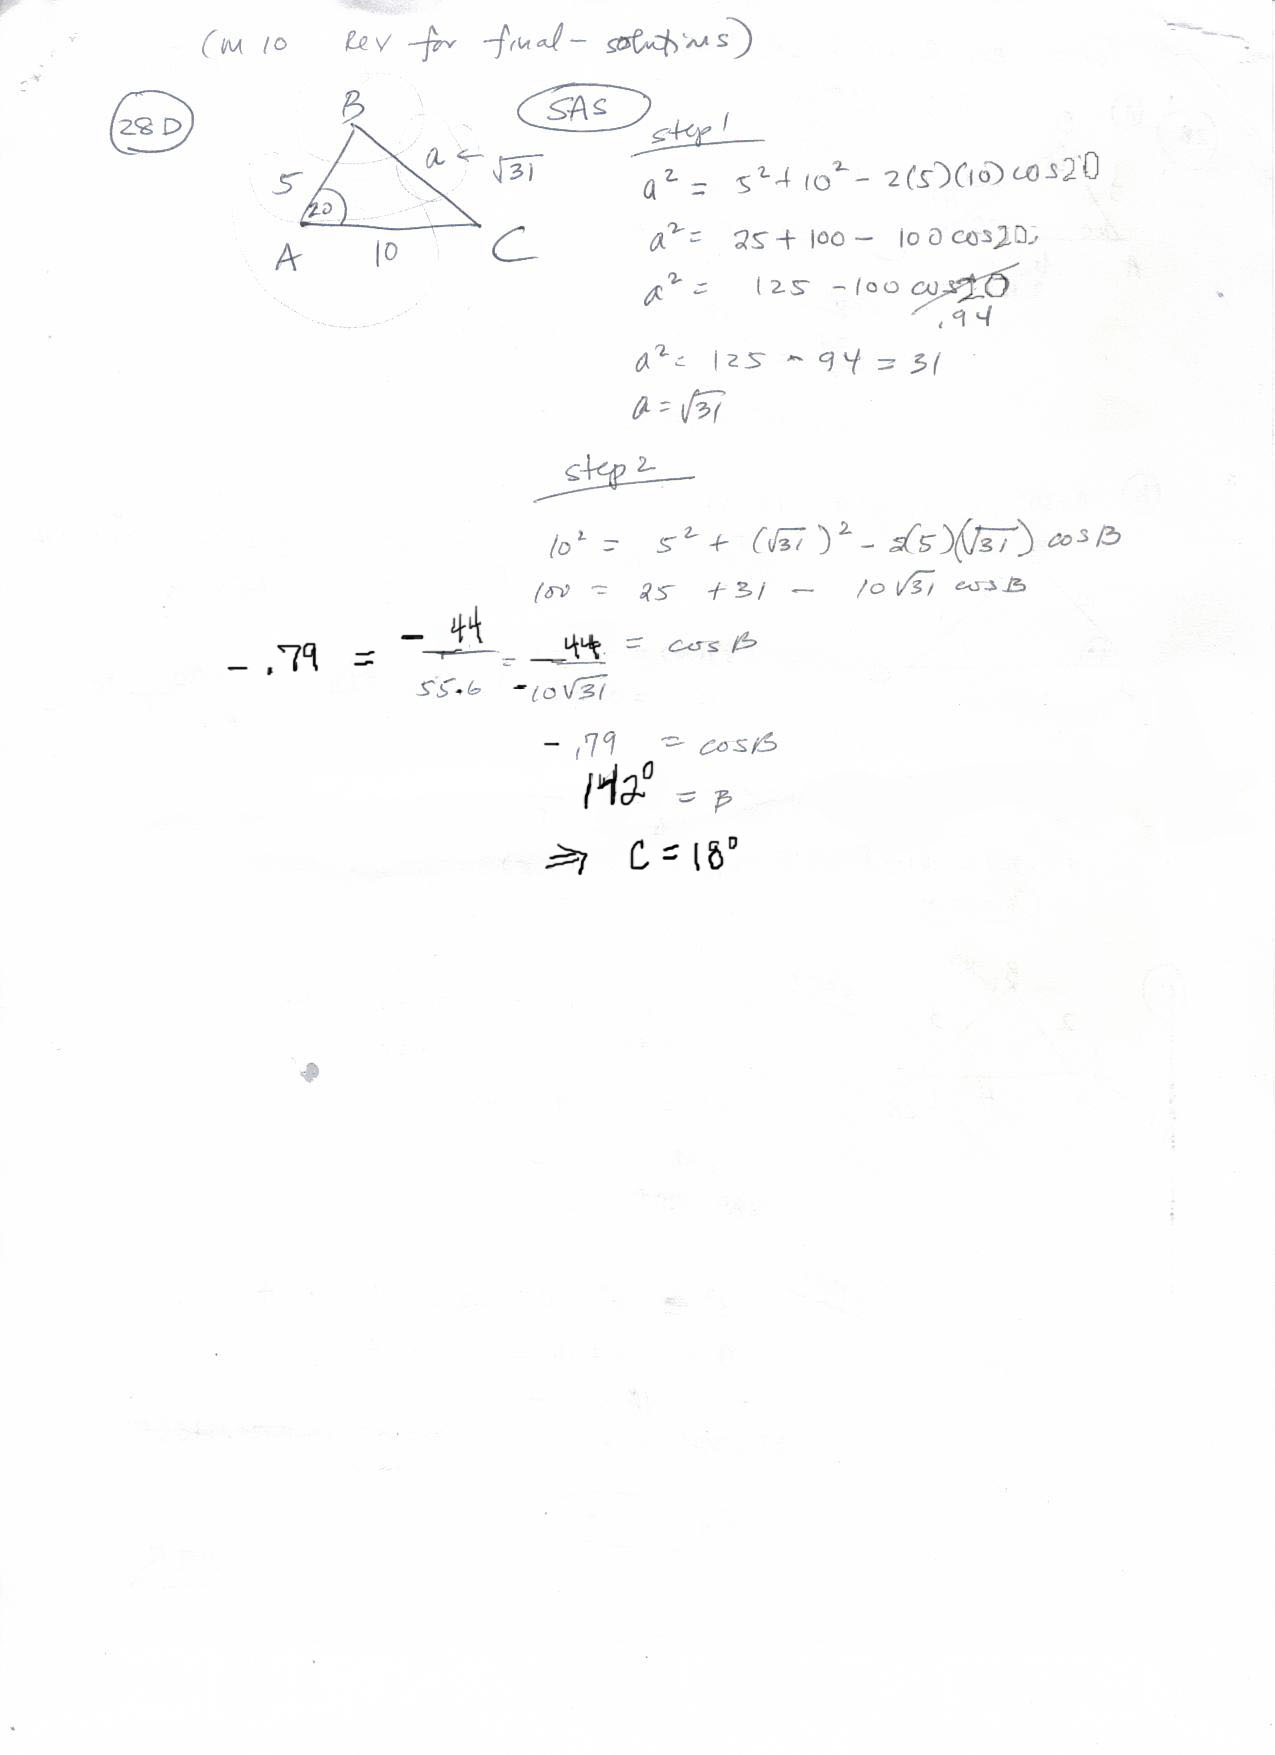 (M 10 Rev for final - solutions)
28D
SAS
B
a ← √31
5
20
A
10
C
step 1
a² = 5² + 10² - 2(5)(10) cos20
a² = 25 + 100 - 100 cos20
a² = 125 - 100 cos20
.94
a² = 125 - 94 = 31
a = √31
step 2
10² = 5² + (√31)² - 2(5)(√31) cosB
100 = 25 + 31 - 10√31 cosB
-.79 = -44/55.6 = 44/-10√31 = cosB
-.79 = cosB
142° = B
⇒ C = 18°